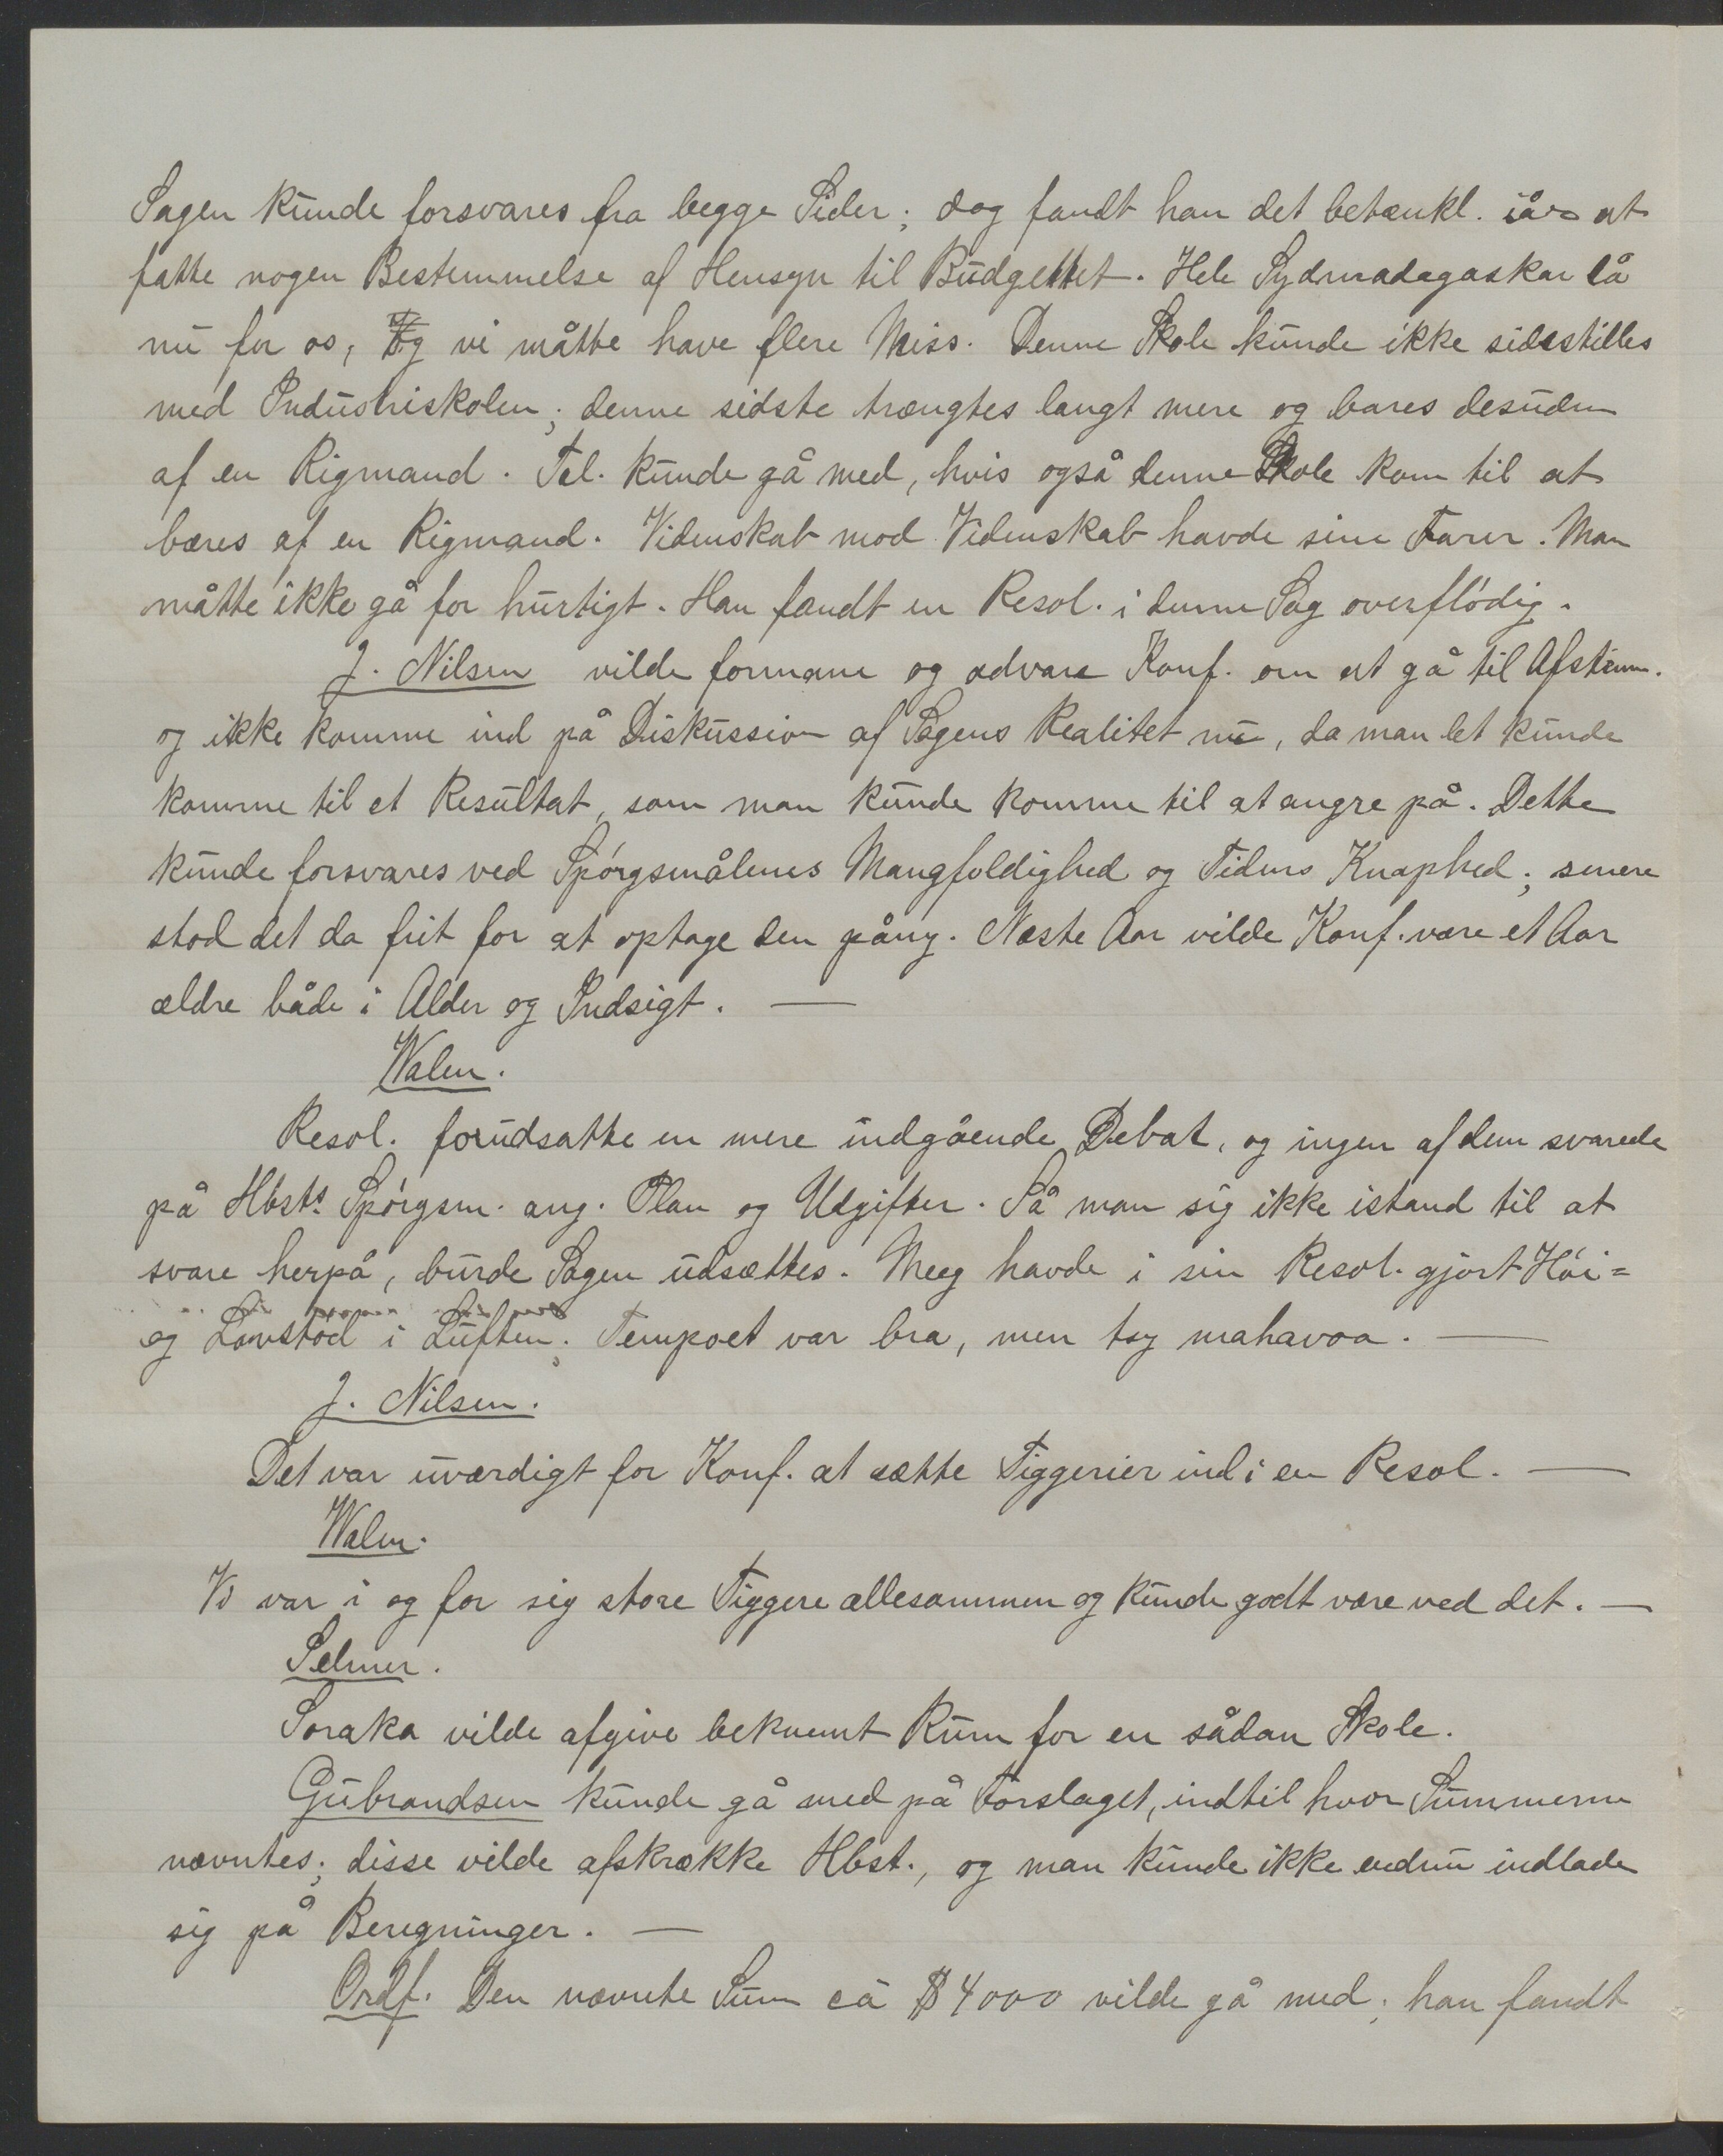 Sagen kunde forsvares fra begge Sider; dog fandt han det betænkl. iår at
fatte nogen Bestemmelse af Hensyn til Budgettet. Hele Sydmadagaskar lå
nu for os, og vi måtte have flere Miss. Denne Skole kunde ikke sidestilles
med Industriskolen; denne sidste trængtes langt mere og bares desuden
af en Rigmand. Tal. kunde gå med, hvis også denne Skole kom til at
bæres af en Rigmand. Videnskab mod Videnskab havde sine Farer. Man
måtte ikke gå for hurtigt. Han fandt en Resol. i denne Sag overflödig.
J. Nilsen vilde formane og advare Konf. om at gå til Afstemn.
og ikke komme ind på Diskussion af Sagens Realitet nu, da man let kunde
komme til et Resultat, som man kunde komme til at angre på. Dette
kunde forsvares ved Spörgsmålenes Mangfoldighed og Tidens Knaphed; senere
stod det da frit for at optage den påny. Næste Aar vilde Konf. være et Aar
ældre både i Alder og Indsigt. —
Walen.
Resol. forudsatte en mere indgående Debat, og ingen af dem svarede
på Hbsts. Spörgsm. ang. Plan og Udgifter. Så man sig ikke istand til at
svare herpå, burde Sagen udsættes. Meeg havde i sin Resol. gjort Höi=
og Lavstöd i Luften. Tempoet var bra, men tsy mahavoa. —
J. Nilsen.
Det var uværdigt for Konf. at sætte Tiggerier ind i en Resol. —
Walen.
Vi var i og for sig store Tiggere allesammen og kunde godt være ved det. —
Selmer.
Soraka vilde afgive bekvemt Rum for en sådan Skole.
Gubrandsen kunde gå med på Forslaget, indtil hvor Summerne
nævntes; disse vilde afskrække Hbst., og man kunde ikke endnu indlade
sig på Beregninger. —
Ordf. Den nævnte Sum cà $ 4000 vilde gå med; han fandt